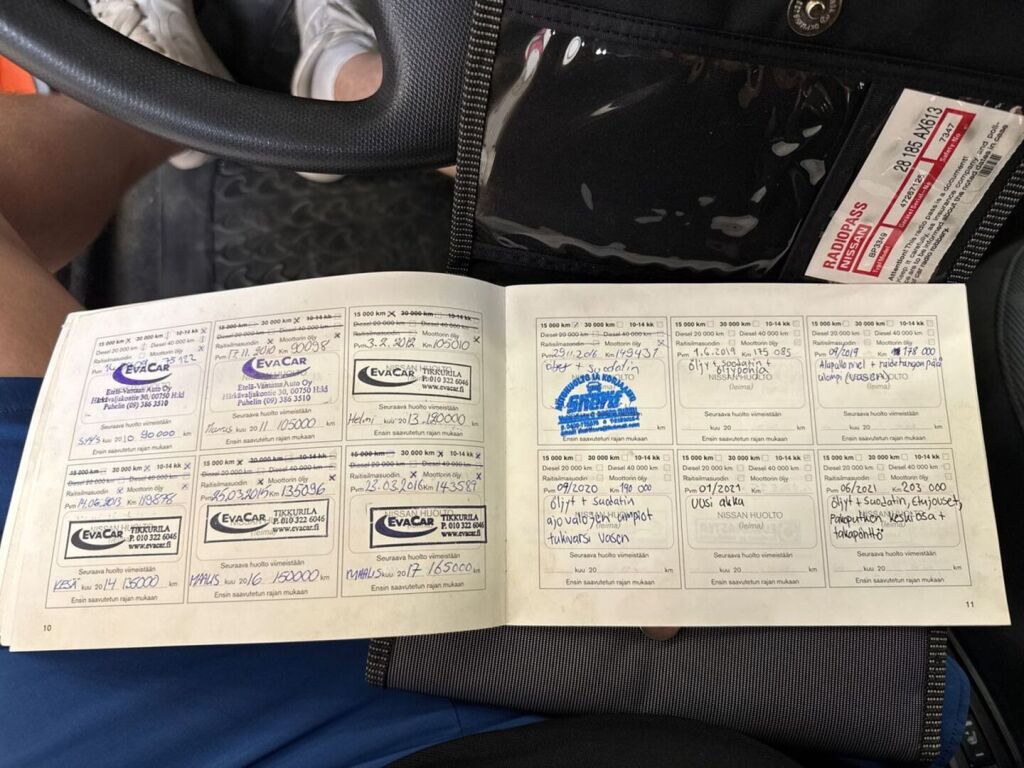 RADIOPASS
NISSAN
28 185 AX613
BP3349
47267125
7347
Safety No
Attention! This radio pass is a document!
Keep it carefully, as insurance company and poli-
ce are to be informed about the noted dates in case
of car radio robbery.
15 000 km 30 000 km 10-14 kk
Raitisilmasuodin Moottorin öljy
EVACAR
Etelä-Vantaan Auto Oy
Härkävaljakontie 30, 00750 H:ki
Puhelin (09) 386 3510
Seuraava huolto viimeistään
kuu 20 10 90000 km
Ensin saavutetun rajan mukaan
15 000 km 30 000 km 10-14 kk
Diesel 20 000 km Diesel 40 000 km
Raitisilmasuodin Moottorin öljy
Pvm 17.11.2010 Km 90098
EVACAR
Etelä-Vantaan Auto Oy
Härkävaljakontie 30, 00750 H:ki
Puhelin (09) 386 3510
Seuraava huolto viimeistään
kuu 20 11 105000 km
Ensin saavutetun rajan mukaan
15 000 km 30 000 km 10-14 kk
Diesel 20 000 km Diesel 40 000 km
Raitisilmasuodin Moottorin öljy
Pvm 3.2.2012 Km 105010
EVACAR TIKKURILA
P. 010 322 6046
www.evacar.fi
Seuraava huolto viimeistään
Helmi kuu 20 13 km
Ensin saavutetun rajan mukaan
15 000 km 30 000 km 10-14 kk
Diesel 20 000 km Diesel 40 000 km
Raitisilmasuodin Moottorin öljy
Pvm 14.06.2013 Km 119878
NISSAN HUOLTO
EVACAR TIKKURILA
P. 010 322 6046
www.evacar.fi
Seuraava huolto viimeistään
KESÄ kuu 20 14 135000 km
Ensin saavutetun rajan mukaan
15 000 km 30 000 km 10-14 kk
Diesel 20 000 km Diesel 40 000 km
Raitisilmasuodin Moottorin öljy
Pvm 25.03.2015 Km 135096
NISSAN HUOLTO
(leima)
EVACAR TIKKURILA
P. 010 322 6046
www.evacar.fi
Seuraava huolto viimeistään
MAALIS kuu 20 16 150000 km
Ensin saavutetun rajan mukaan
15 000 km 30 000 km 10-14 kk
Diesel 20 000 km Diesel 40 000 km
Raitisilmasuodin Moottorin öljy
Pvm 23.03.2016 Km 143589
NISSAN HUOLTO
EVACAR TIKKURILA
P. 010 322 6046
www.evacar.fi
Seuraava huolto viimeistään
MAALIS kuu 20 17 165000 km
Ensin saavutetun rajan mukaan
10
15 000 km 30 000 km 10-14 kk
Diesel 20 000 km Diesel 40 000 km
Raitisilmasuodin Moottorin öljy
Pvm 25.11.2016 Km 149437
öljyt + suodatin
Seuraava huolto viimeistään
kuu 20 km
Ensin saavutetun rajan mukaan
15 000 km 30 000 km 10-14 kk
Diesel 20 000 km Diesel 40 000 km
Raitisilmasuodin Moottorin öljy
Pvm 1.6.2019 Km 175 085
öljyt + suodatin +
öljypohja
NISSAN HUOLTO
(leima)
Seuraava huolto viimeistään
kuu 20 km
Ensin saavutetun rajan mukaan
15 000 km 30 000 km 10-14 kk
Diesel 20 000 km Diesel 40 000 km
Raitisilmasuodin Moottorin öljy
Pvm 09/2019 Km 178 000
Alapallonivel + raidetangon pää
ulompi (vasen)
NISSAN HUOLTO
(leima)
Seuraava huolto viimeistään
kuu 20 km
Ensin saavutetun rajan mukaan
15 000 km 30 000 km 10-14 kk
Diesel 20 000 km Diesel 40 000 km
Raitisilmasuodin Moottorin öljy
Pvm 09/2020 Km 190 000
öljyt + suodatin
ajovalojen umpiot
tukivarsi vasen
NISSAN HUOLTO
(leima)
Seuraava huolto viimeistään
kuu 20 km
Ensin saavutetun rajan mukaan
15 000 km 30 000 km 10-14 kk
Diesel 20 000 km Diesel 40 000 km
Raitisilmasuodin Moottorin öljy
Pvm 01/2021 Km
Uusi akku
NISSAN HUOLTO
(leima)
Seuraava huolto viimeistään
kuu 20 km
Ensin saavutetun rajan mukaan
15 000 km 30 000 km 10-14 kk
Diesel 20 000 km Diesel 40 000 km
Raitisilmasuodin Moottorin öljy
Pvm 06/2021 Km 203 000
öljyt + suodatin, Etujouset,
Pakoputken keskiosa +
takapönttö
Seuraava huolto viimeistään
kuu 20 km
Ensin saavutetun rajan mukaan
11